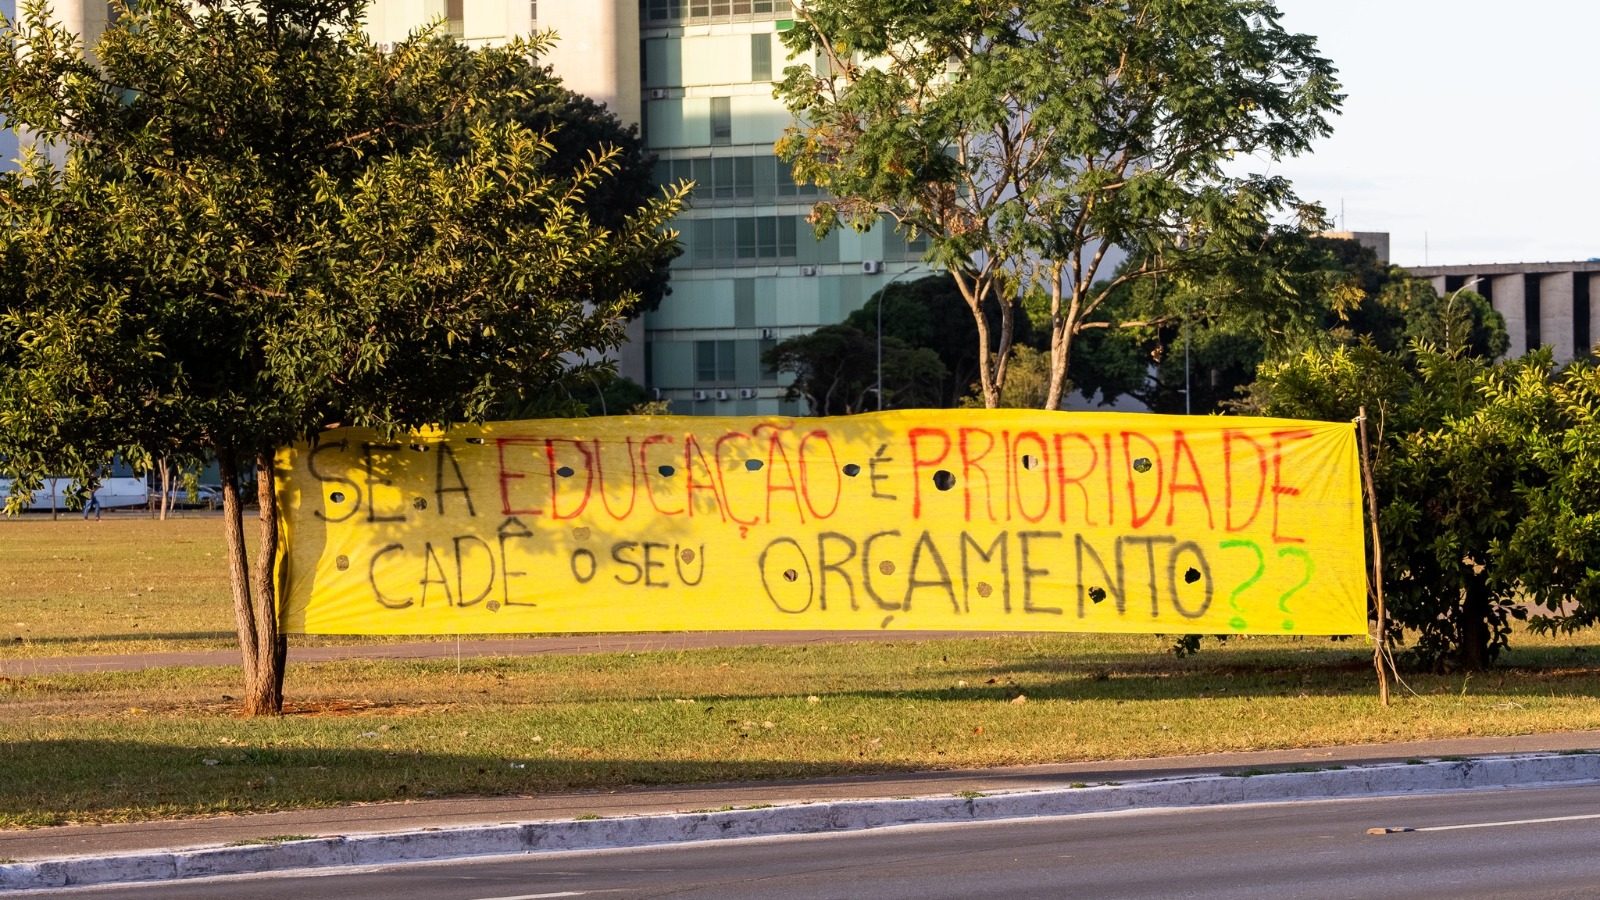 SE A EDUCAÇÃO É PRIORIDADE
CADÊ O SEU ORÇAMENTO??